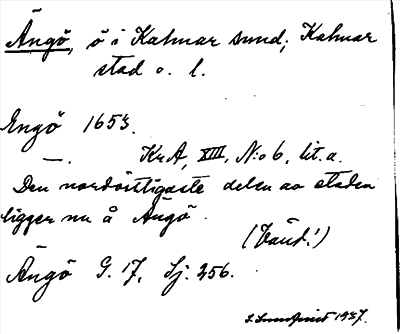 Ängö, ö i Kalmar sund, Kalmar
stad o. l.
Engö 1653.
—. KrA, XIII, N:o 6, lit. a.
Den nordöstligaste delen av staden
ligger nu å Ängö.
(Känd!)
Ängö G. 17, Sj. 256.
1937.